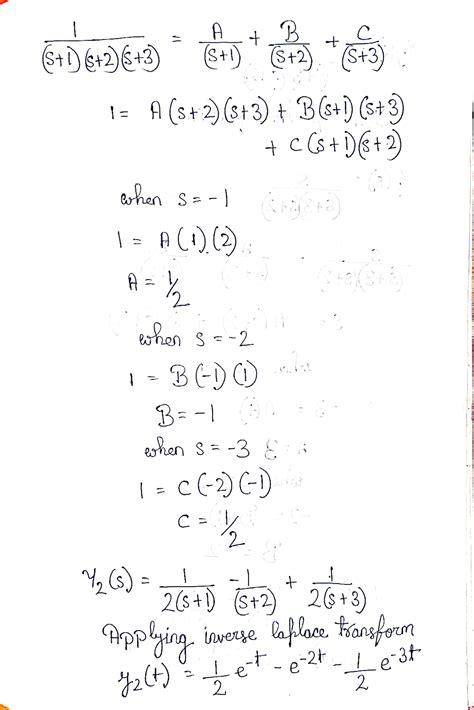 1/((s+1)(s+2)(s+3)) = A/(s+1) + B/(s+2) + C/(s+3)
1 = A(s+2)(s+3) + B(s+1)(s+3)
+ C(s+1)(s+2)
when s = -1
1 = A(1).(2)
A = 1/2
when s = -2
1 = B(-1)(1)
B = -1
when s = -3
1 = C(-2)(-1)
C = 1/2
Y₂(s) = 1/(2(s+1)) - 1/(s+2) + 1/(2(s+3))
Applying inverse laplace transform
y₂(t) = 1/2 e^-t - e^-2t - 1/2 e^-3t